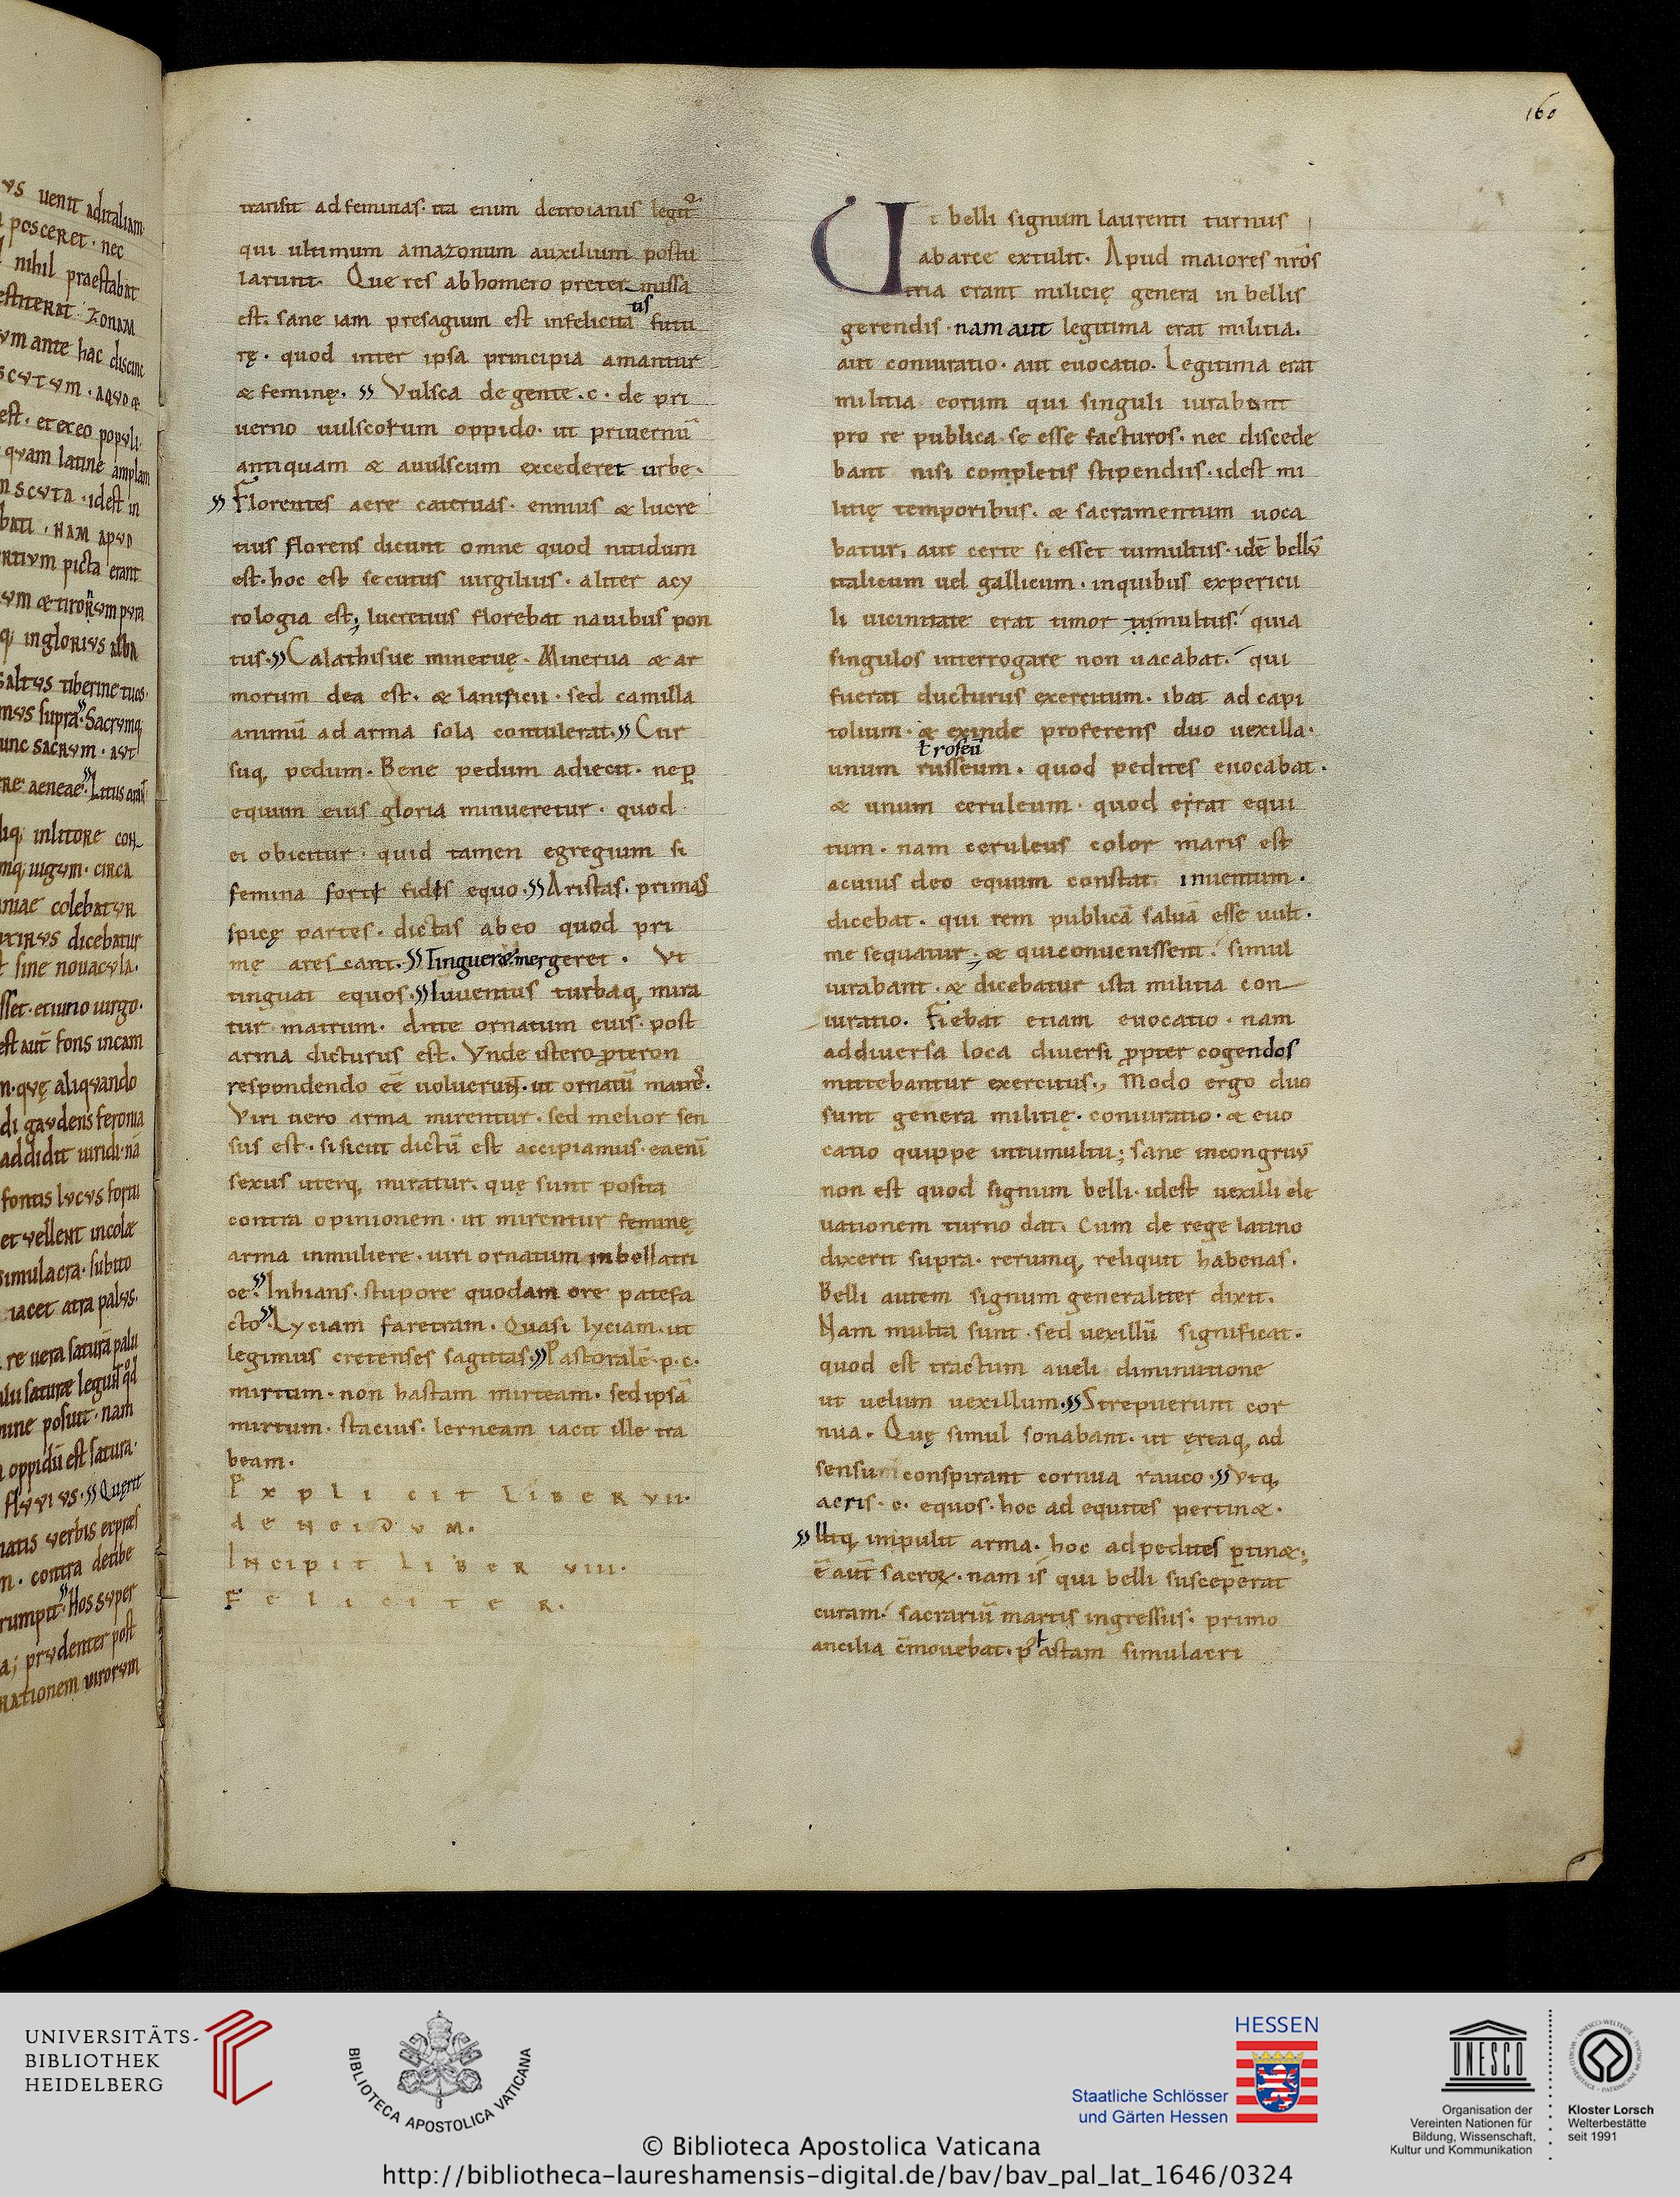 vs uenit aditaliam
posceret · nec
nihil praestabat
estiterat · zonam
vm ante hac discinc
scvtvm · aqvo &
est · et ex eo popvli
qvam latine amplam
n scvta · idest in
bati · nam apvd
rtivm picta erant
vm & tironvm pvra
q; inglorivs alba
saltvs tiberine tuos·
mvs supra· Sacrvmq;
unc sacrvm · avt
re aeneae· Litus
inlitore con
mq; iugvm · circa
niae colebatvr
dicebatur
sine nouacvla·
sset · et iuno uirgo·
est aut fons incam
n · qvę aliqvando
di gavdens feronia
addidit uiridi · nā
fontis lvcvs fortu
et vellent incolae
simulacra · subito
iacet atra palvs·
re uera saturā palu
alu saturae legunt qd
nine posuit · nam
oppidū est satura·
flvvivs · Querit
natis verbis
n · contra
rumpit · Hos svper
a; prvdenter post
rationem virorvm
160
transit ad feminas· ita enim detroianis legit᷑
qui ultimum amazonum auxilium postu
larunt· Que res ab homero preter missa
est· sane iam presagium est infelicita tis futu
rę · quod inter ipsa principia amantur
& feminę · Vulsca de gente · c · de pri
uerno uulscorum oppido· ut priuernū
antiquam & auulscum excederet urbe·
Florentes aere cateruas· ennius & lucre
tius florens dicunt omne quod nitidum
est· hoc est secutus uirgilius· aliter acy
rologia est; lucretius florebat nauibus pon
tus· Calathisue mineruę· Minerua & ar
morum dea est· & lanificii· sed camilla
animū ad arma sola contulerat· Cur
suq; pedum· Bene pedum adiecit· nep̄
equum eius gloria minueretur· quod
ei obicitur· quid tamen egregium si
femina fortis fidis equo· Aristas· primas
spicę partes· dictas ab eo quod pri
mę arescant· Tinguer& mergeret · Vt
tinguat equos· Iuuentus turbaq; mira
tur matrum· ante ornatum eius· post
arma dicturus est· Vnde istero proteron
respondendo eē uoluerunt· ut ornatū matres·
Viri uero arma mirentur· sed melior sen
sus est· si sicut dictū est accipiamus· ea enī
sexus uterq; miratur· quę sunt posita
contra opinionem· ut mirentur feminę
arma inmuliere· uiri ornatum in bellatri
ce· Inhians· stupore quodam ore patefa
cto· Lyciam faretram· Quasi lyciam· ut
legimus cretenses sagittas· Pastoralē· p· c·
mirtum· non hastam mirteam· sed ipsā
mirtum· stacius· lerneam iacit ille tra
beam·
Explicit liber vii·
aeneidvm·
Incipit liber viii·
Feliciter·
Ut belli signum laurenti turnus
abarce extulit· Apud maiores nr̄os
tria erant milicię genera in bellis
gerendis· nam aut legitima erat militia·
aut coniuratio· aut euocatio· Legitima erat
militia eorum qui singuli iurabant
pro re publica se esse facturos· nec discede
bant nisi completis stipendiis· idest mi
litię temporibus· & sacramentum uoca
batur, aut certe si esset tumultus· idē bellū
italicum uel gallicum· inquibus expericu
li uicinitate erat timor tumultus· quia
singulos interrogare non uacabat· qui
fuerat ducturus exercitum· ibat ad capi
tolium· & exinde proferens duo uexilla·
ł roseū
unum russeum· quod pedites euocabat·
& unum ceruleum· quod errat equi
tum· nam ceruleus color maris est
acuius deo equum constat inuentum·
dicebat· qui rem publicā saluā esse uult·
me sequatur; & quiconuenissent· simul
iurabant· & dicebatur ista militia con
iuratio· Fiebat etiam euocatio· nam
addiuersa loca diuersi propter cogendos
mittebantur exercitus·, Modo ergo duo
sunt genera militię· coniuratio· & euo
catio quippe intumultu; sane incongruū
non est quod signum belli· idest uexilli ele
uationem turno dat· Cum de rege latino
dixerit supra· rerumq; reliquit habenas·
Belli autem signum generaliter dixit·
Nam multa sunt· sed uexillū significat·
quod est tractum aueli diminutione
ut uelum uexillum· Strepuerunt cor
nua· Quę simul sonabant· ut ęreaq; ad
sensu conspirant cornua rauco· Vtq;
acris· c· equos· hoc ad equites pertin&·
Utq; impulit arma· hoc ad pedites ptin&;
ē aut̄ sacrorꝝ· nam is qui belli susceperat
curam· sacrariū martis ingressus· primo
ancilia c̄mouebat· p᷑ astam simulacri
UNIVERSITÄTS-
BIBLIOTHEK
HEIDELBERG
BIBLIOTECA APOSTOLICA VATICANA
HESSEN
Staatliche Schlösser
und Gärten Hessen
UNESCO
Organisation der
Vereinten Nationen für
Bildung, Wissenschaft,
Kultur und Kommunikation
Kloster Lorsch
Welterbestätte
seit 1991
© Biblioteca Apostolica Vaticana
http://bibliotheca-laureshamensis-digital.de/bav/bav_pal_lat_1646/0324